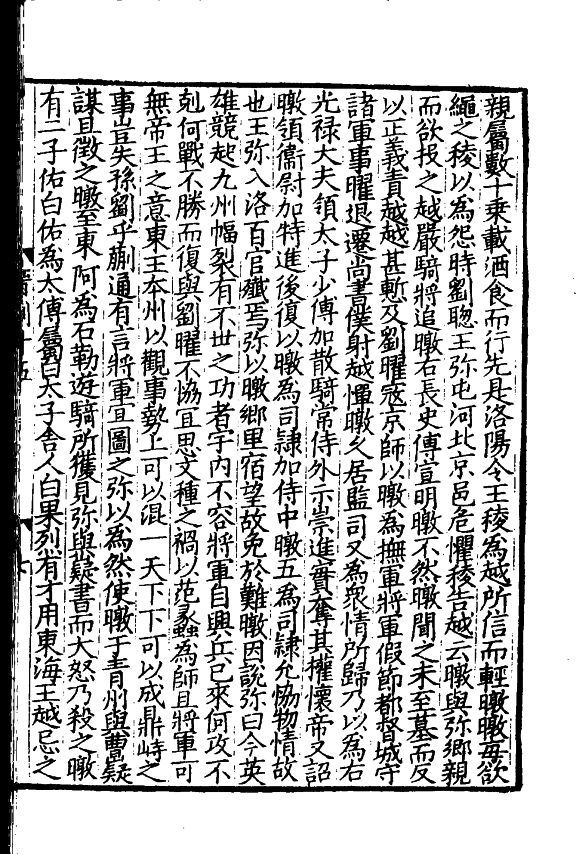 親屬數十乗載酒食而行先是洛陽令王稜為越所信而輕暾暾每欲
繩之稜以為怨時劉聦王弥屯河北京邑危懼稜告越云暾與弥鄉親
而欲投之越嚴騎將追暾右長史傅宣明暾不然暾聞之未至墓而反
以正義責越越甚慙及劉曜宼京師以暾為撫軍將軍假節都督城守
諸軍事曜退遷尚書僕射越憚暾乆居監司又為衆情所歸乃以為右
光禄大夫領太子少傅加散騎常侍外示崇進實奪其權懷帝又詔
暾領衞尉加特進後復以暾為司隸加侍中暾五為司隸允恊物情故
也王弥入洛百官殱焉弥以暾鄉里宿望故免於難暾因說弥曰今英
雄競起九州幅裂有不丗之功者宇内不容將軍自興兵已來何攻不
剋何戰不勝而復與劉曜不恊冝思文種之禍以范蠡為師且將軍可
無帝王之意東王本州以觀事勢上可以混一天下下可以成鼎峙之
事豈失孫劉乎蒯通有言將軍冝圖之弥以為然使暾于青州與曹嶷
謀且徵之暾至東阿為石勒遊騎所獲見弥與嶷書而大怒乃殺之暾
有二子佑白佑為太傅屬白太子舎人白果烈有才用東海王越忌之